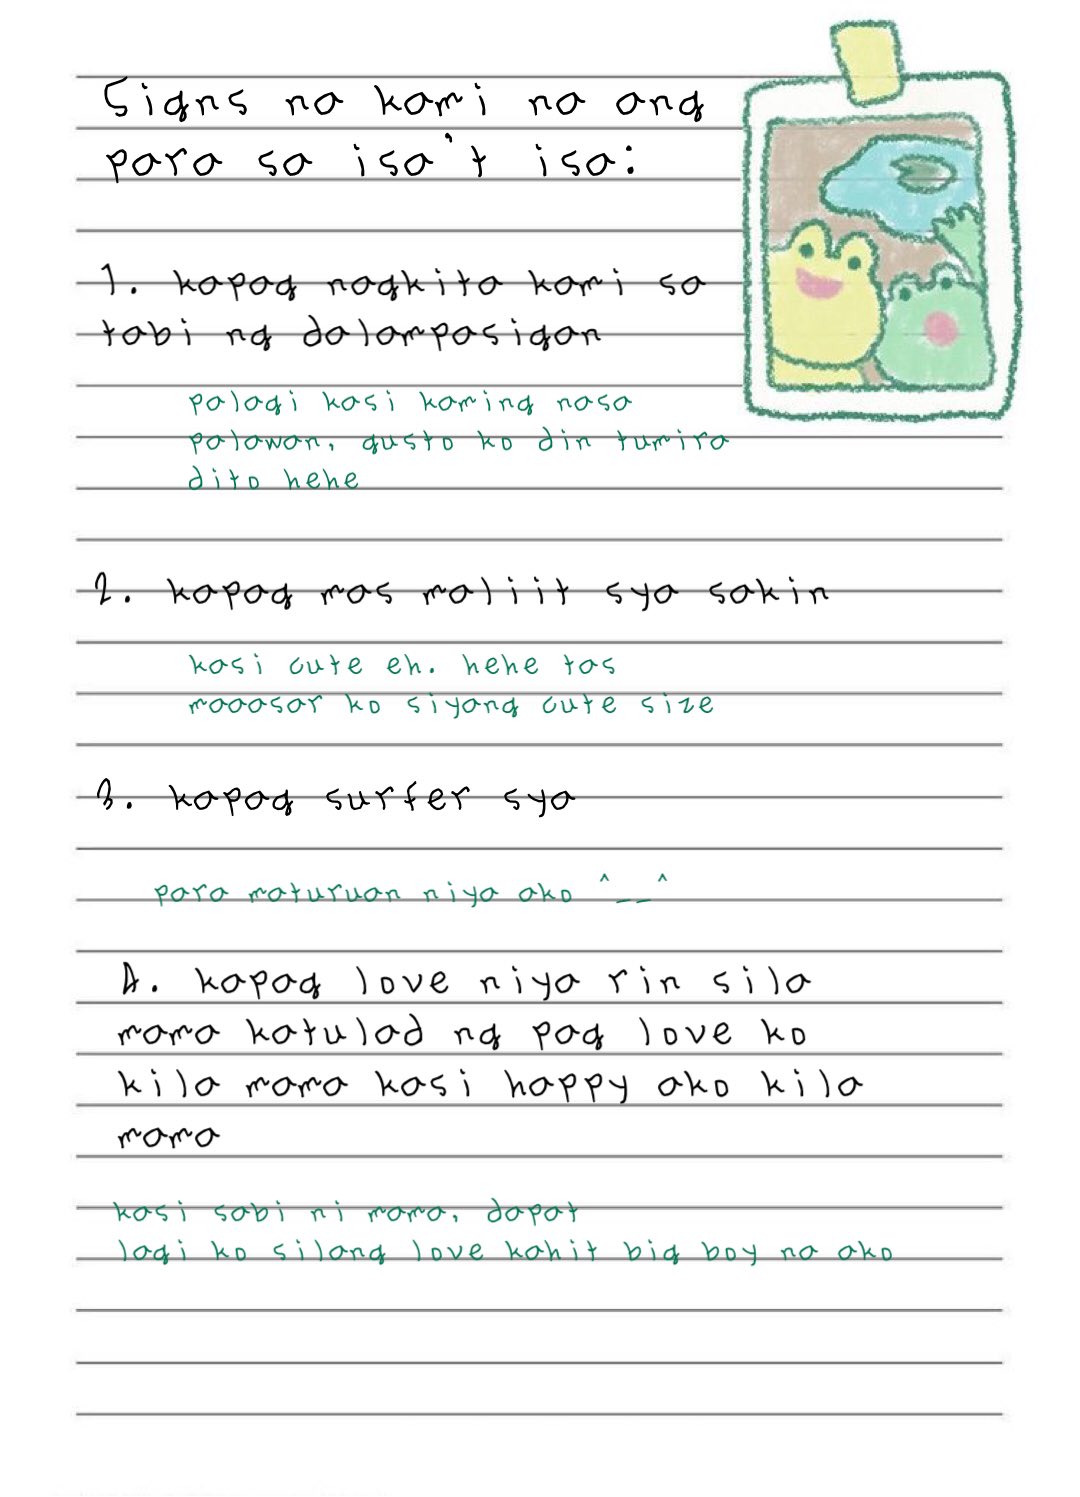 Signs na kami na ang
para sa isa't isa:
1. kapag nagkita kami sa
tabi ng dalampasigan
palagi kasi kaming nasa
palawan, gusto ko din tumira
dito hehe
2. kapag mas maliit sya sakin
kasi cute eh. hehe tas
maaasar ko siyang cute size
3. kapag surfer sya
para maturuan niya ako ^__^
4. kapag love niya rin sila
mama katulad ng pag love ko
kila mama kasi happy ako kila
mama
kasi sabi ni mama, dapat
lagi ko silang love kahit big boy na ako